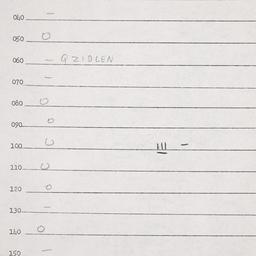 040 –
050 O
060 – QZIDLEN
070 –
080 O
090 O
100 U 111 –
110 U
120 O
130 –
140 O
150 –